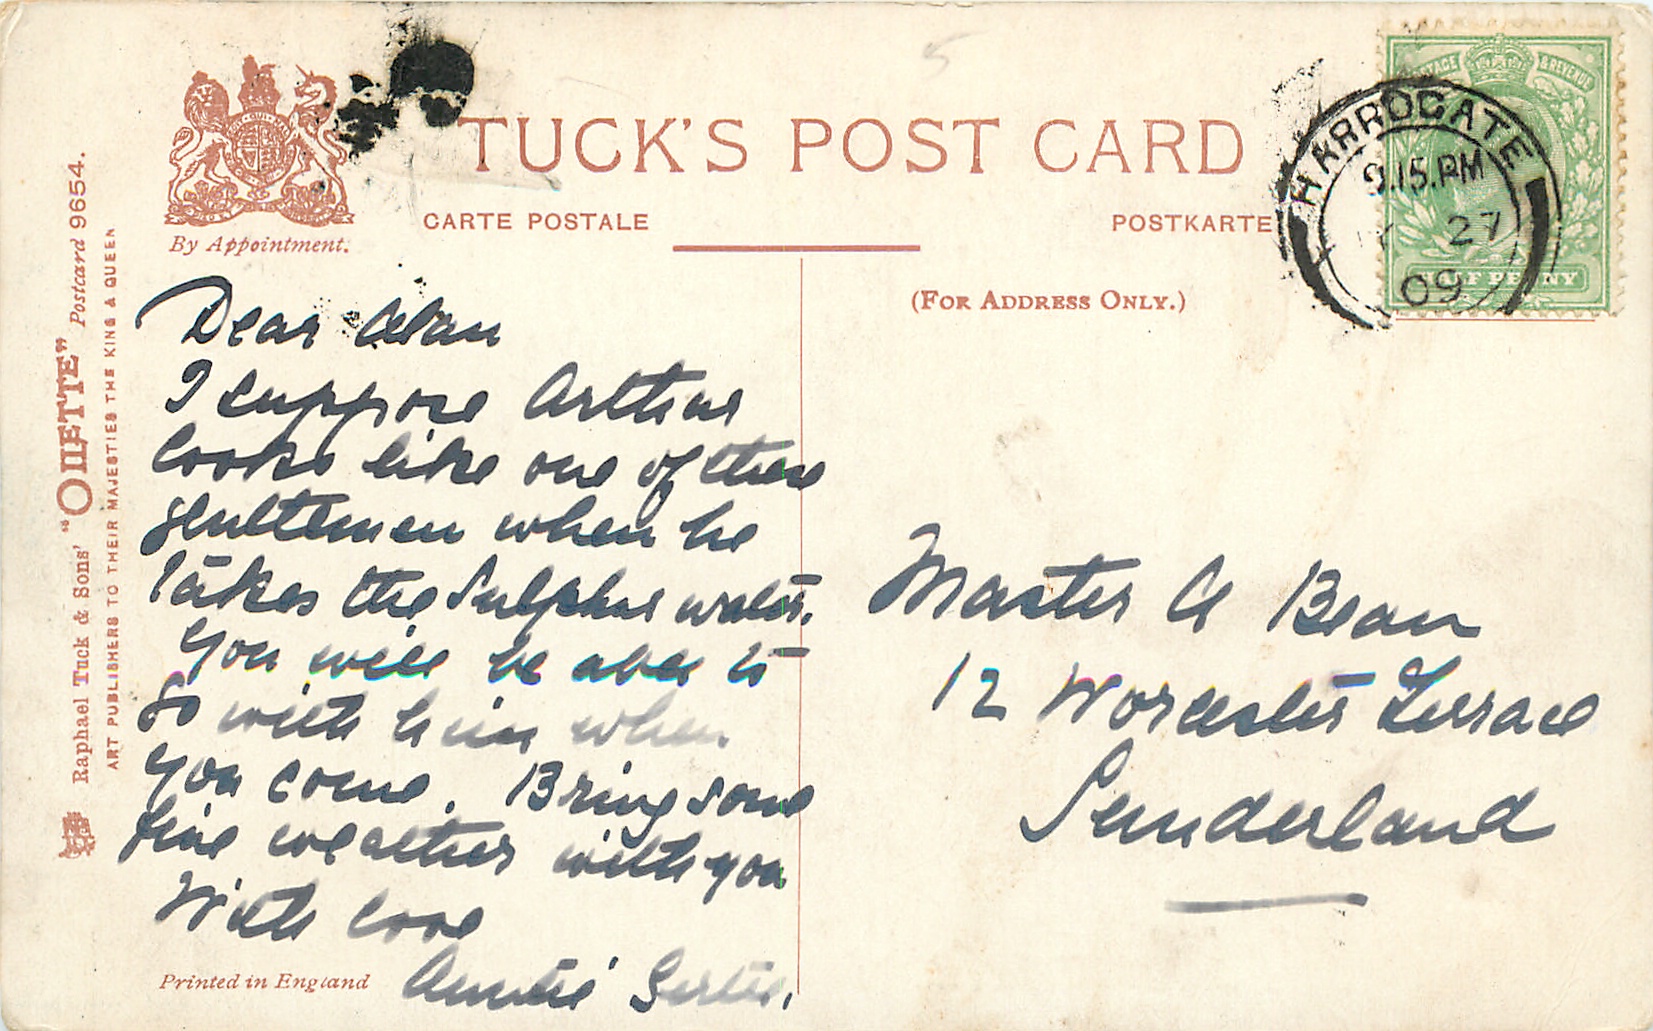 TUCK'S POST CARD
CARTE POSTALE
POSTKARTE
By Appointment.
(FOR ADDRESS ONLY.)
POSTAGE & REVENUE
HALF PENNY
HARROGATE
9.15.PM
27
09
5
Raphael Tuck & Sons' "OILETTE" Postcard 9654.
ART PUBLISHERS TO THEIR MAJESTIES THE KING & QUEEN
Dear Alan
I suppose Arthur
looks like one of these
gentlemen when he
takes the Sulphur water.
You will be able to
go with him when
you come. Bring some
fine weather with you
With love
Auntie Gertie.
Printed in England
Master A Bean
12 Worcester Terrace
Sunderland